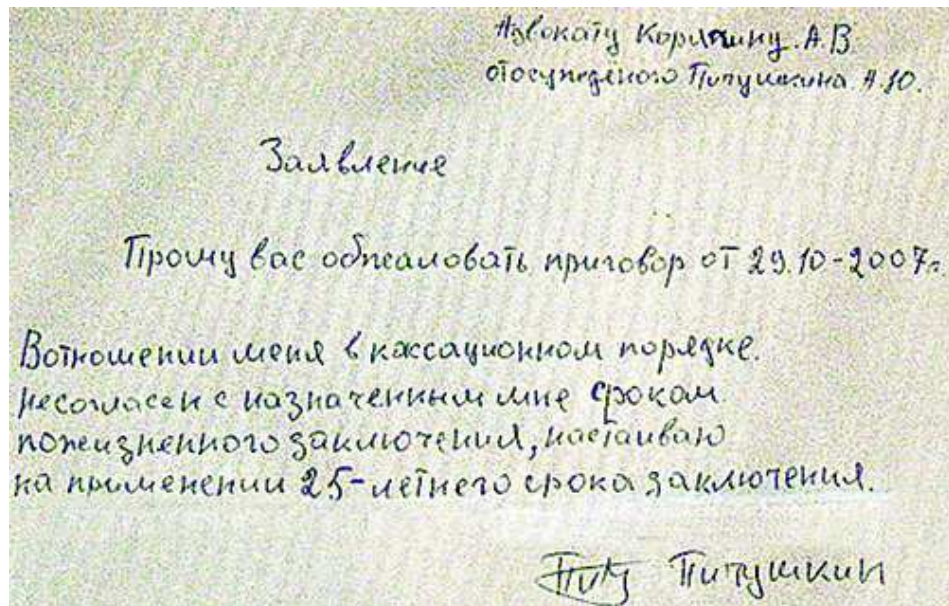 Адвокату Корягину. А.В
отосужденого Пичушкина А.Ю.
Заявление
Прошу вас обжаловать приговор от 29.10-2007г
Вотношении меня в кассационном порядке.
несогласен с назначенным мне сроком
пожизненного заключения, настаиваю
на применении 25-летнего срока заключения.
Пичушкин